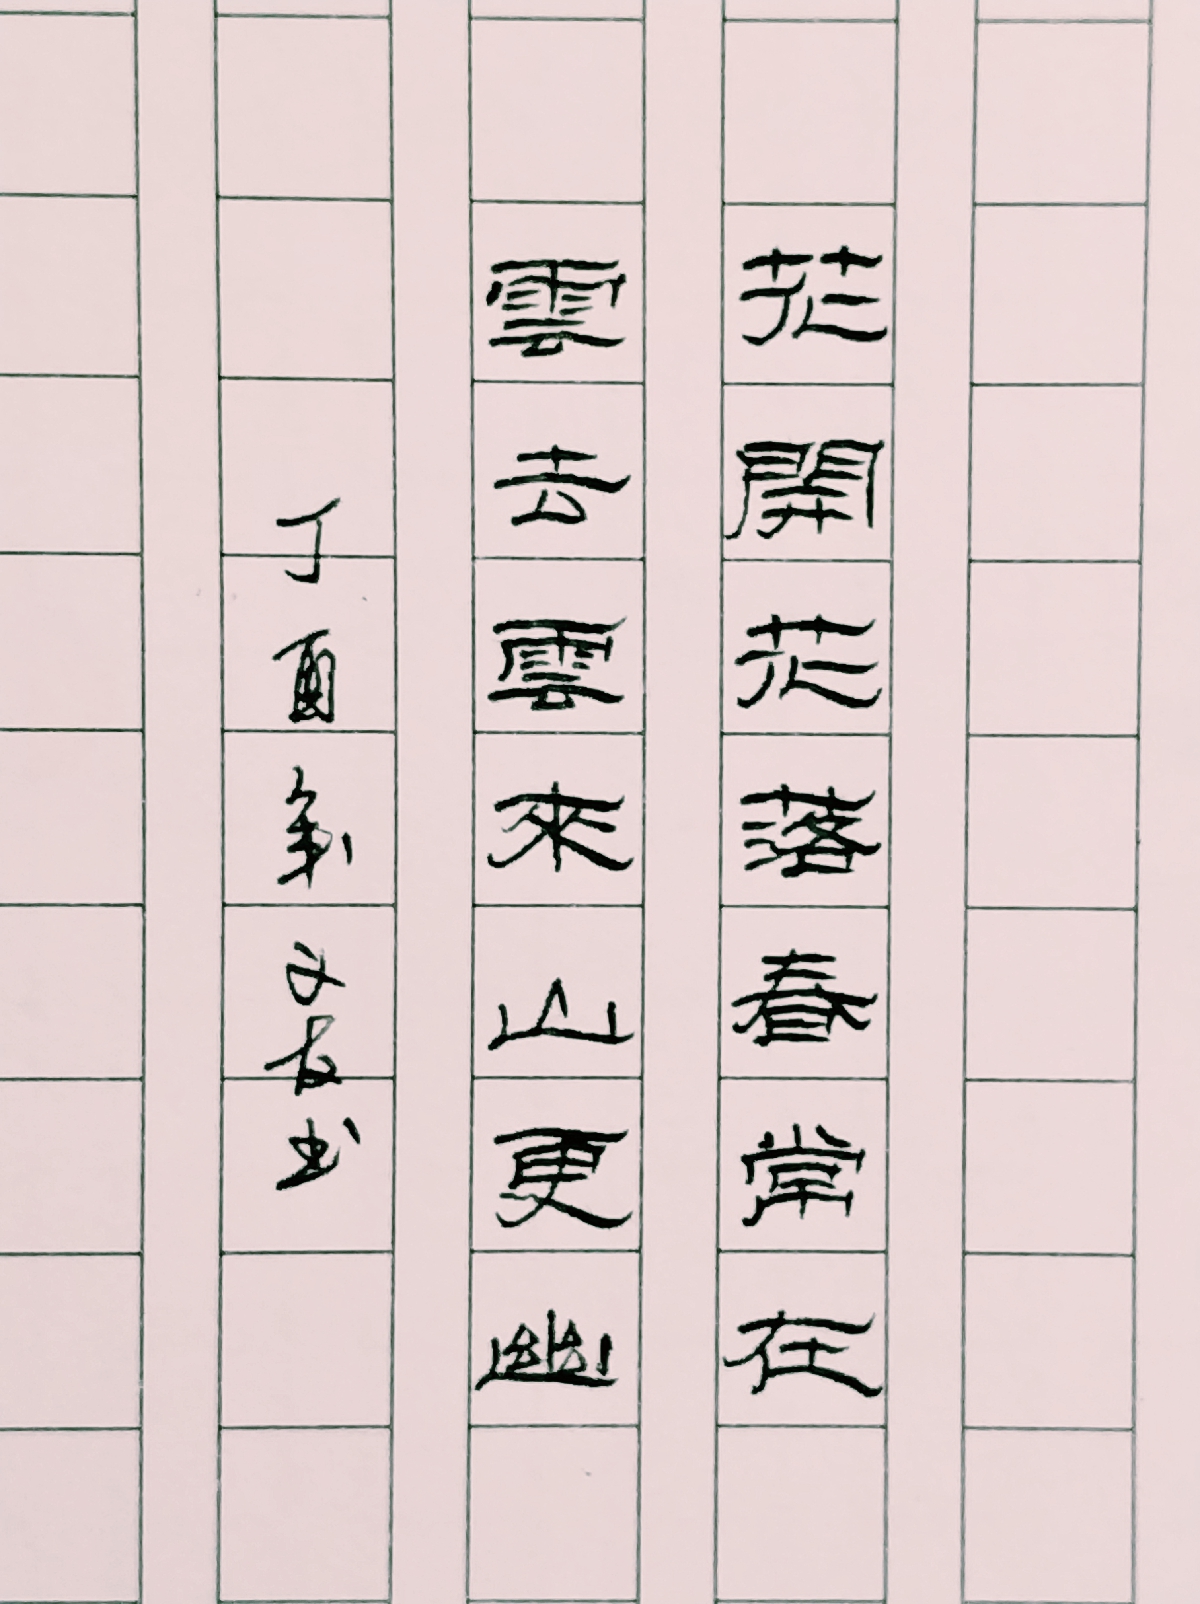 花開花落春常在
雲去雲來山更幽
丁酉年文友书